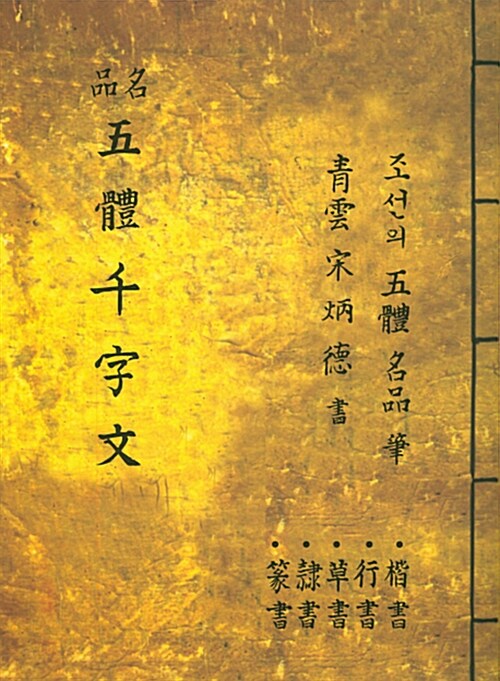 조선의 五體 名品 筆
靑雲 宋炳德 書
名品
五體千字文
・楷書
・行書
・草書
・隷書
・篆書